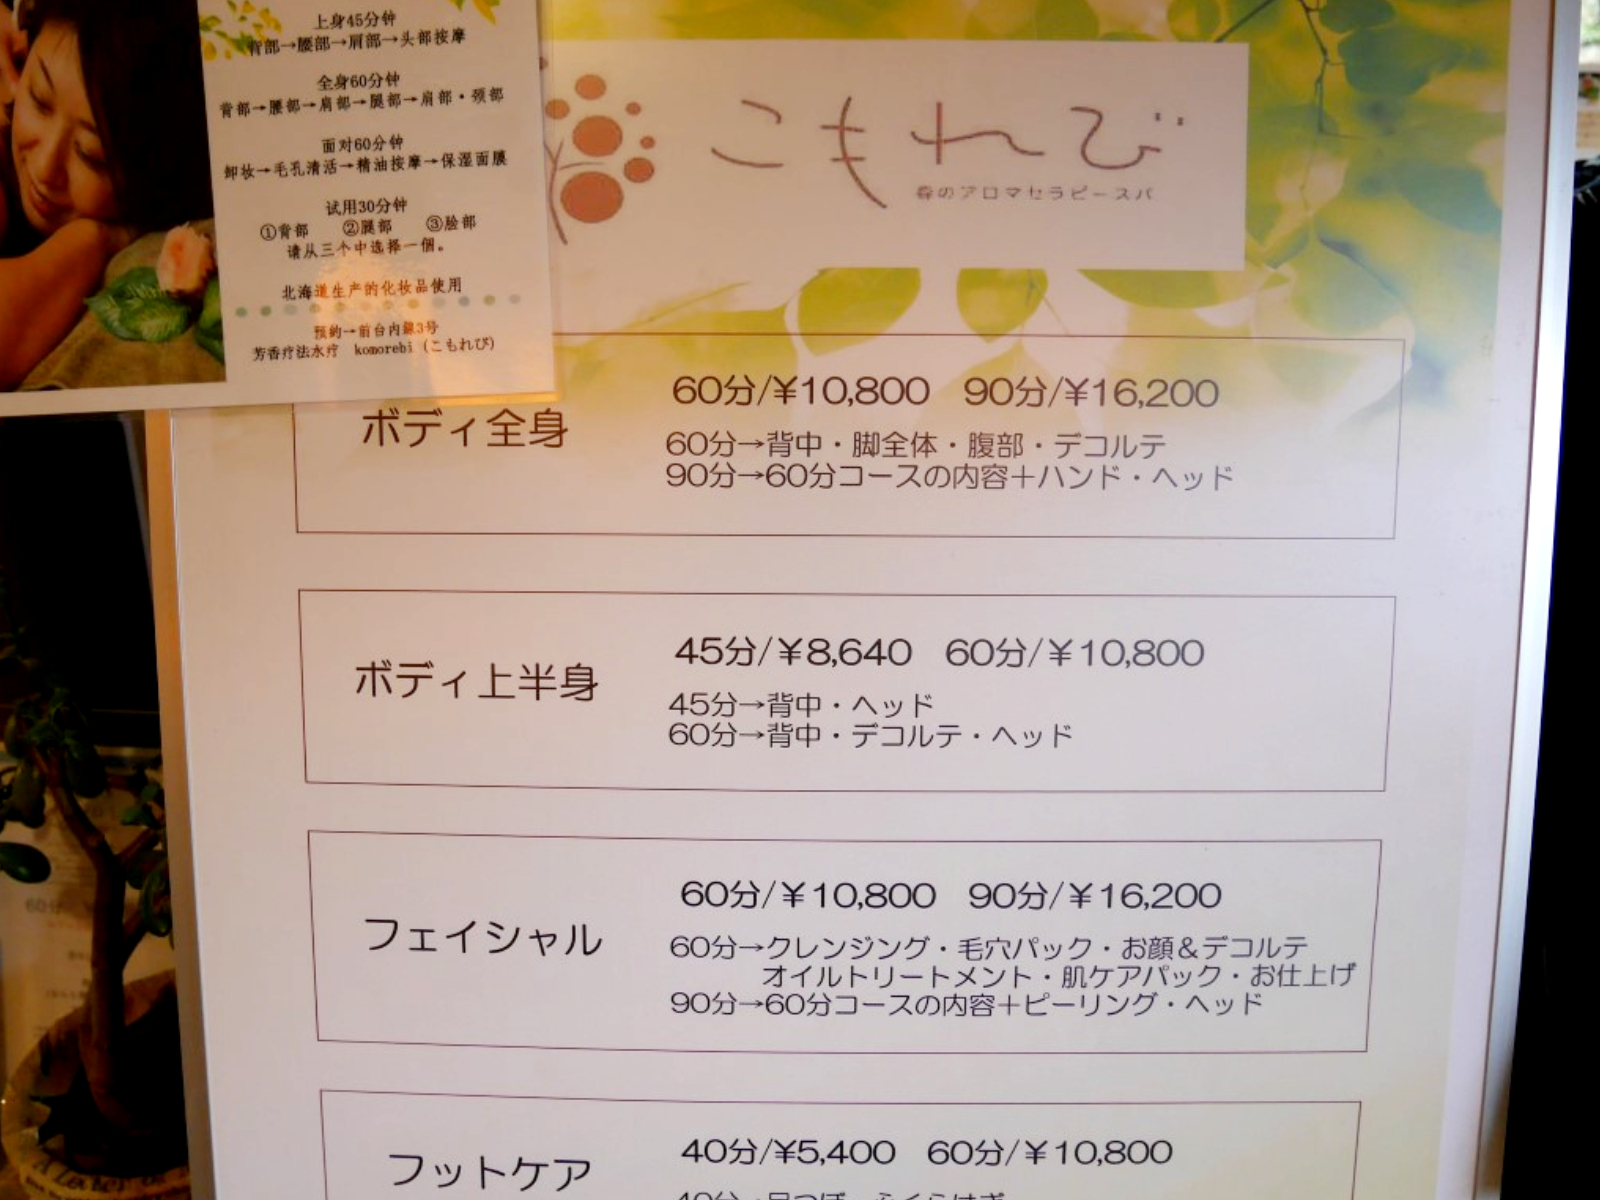 上身45分钟
背部→腰部→肩部→头部按摩
全身60分钟
背部→腰部→肩部→腿部→肩部・颈部
面对60分钟
卸妆→毛孔清活→精油按摩→保湿面膜
试用30分钟
①背部 ②腿部 ③脸部
请从三个中选择一個。
北海道生产的化妆品使用
预约→前台内線3号
芳香疗法水疗 komorebi (こもれび)
こもれび
森のアロマセラピースパ
ボディ全身
60分/¥10,800 90分/¥16,200
60分→背中・脚全体・腹部・デコルテ
90分→60分コースの内容＋ハンド・ヘッド
ボディ上半身
45分/¥8,640 60分/¥10,800
45分→背中・ヘッド
60分→背中・デコルテ・ヘッド
フェイシャル
60分/¥10,800 90分/¥16,200
60分→クレンジング・毛穴パック・お顔＆デコルテ
オイルトリートメント・肌ケアパック・お仕上げ
90分→60分コースの内容＋ピーリング・ヘッド
フットケア
40分/¥5,400 60分/¥10,800